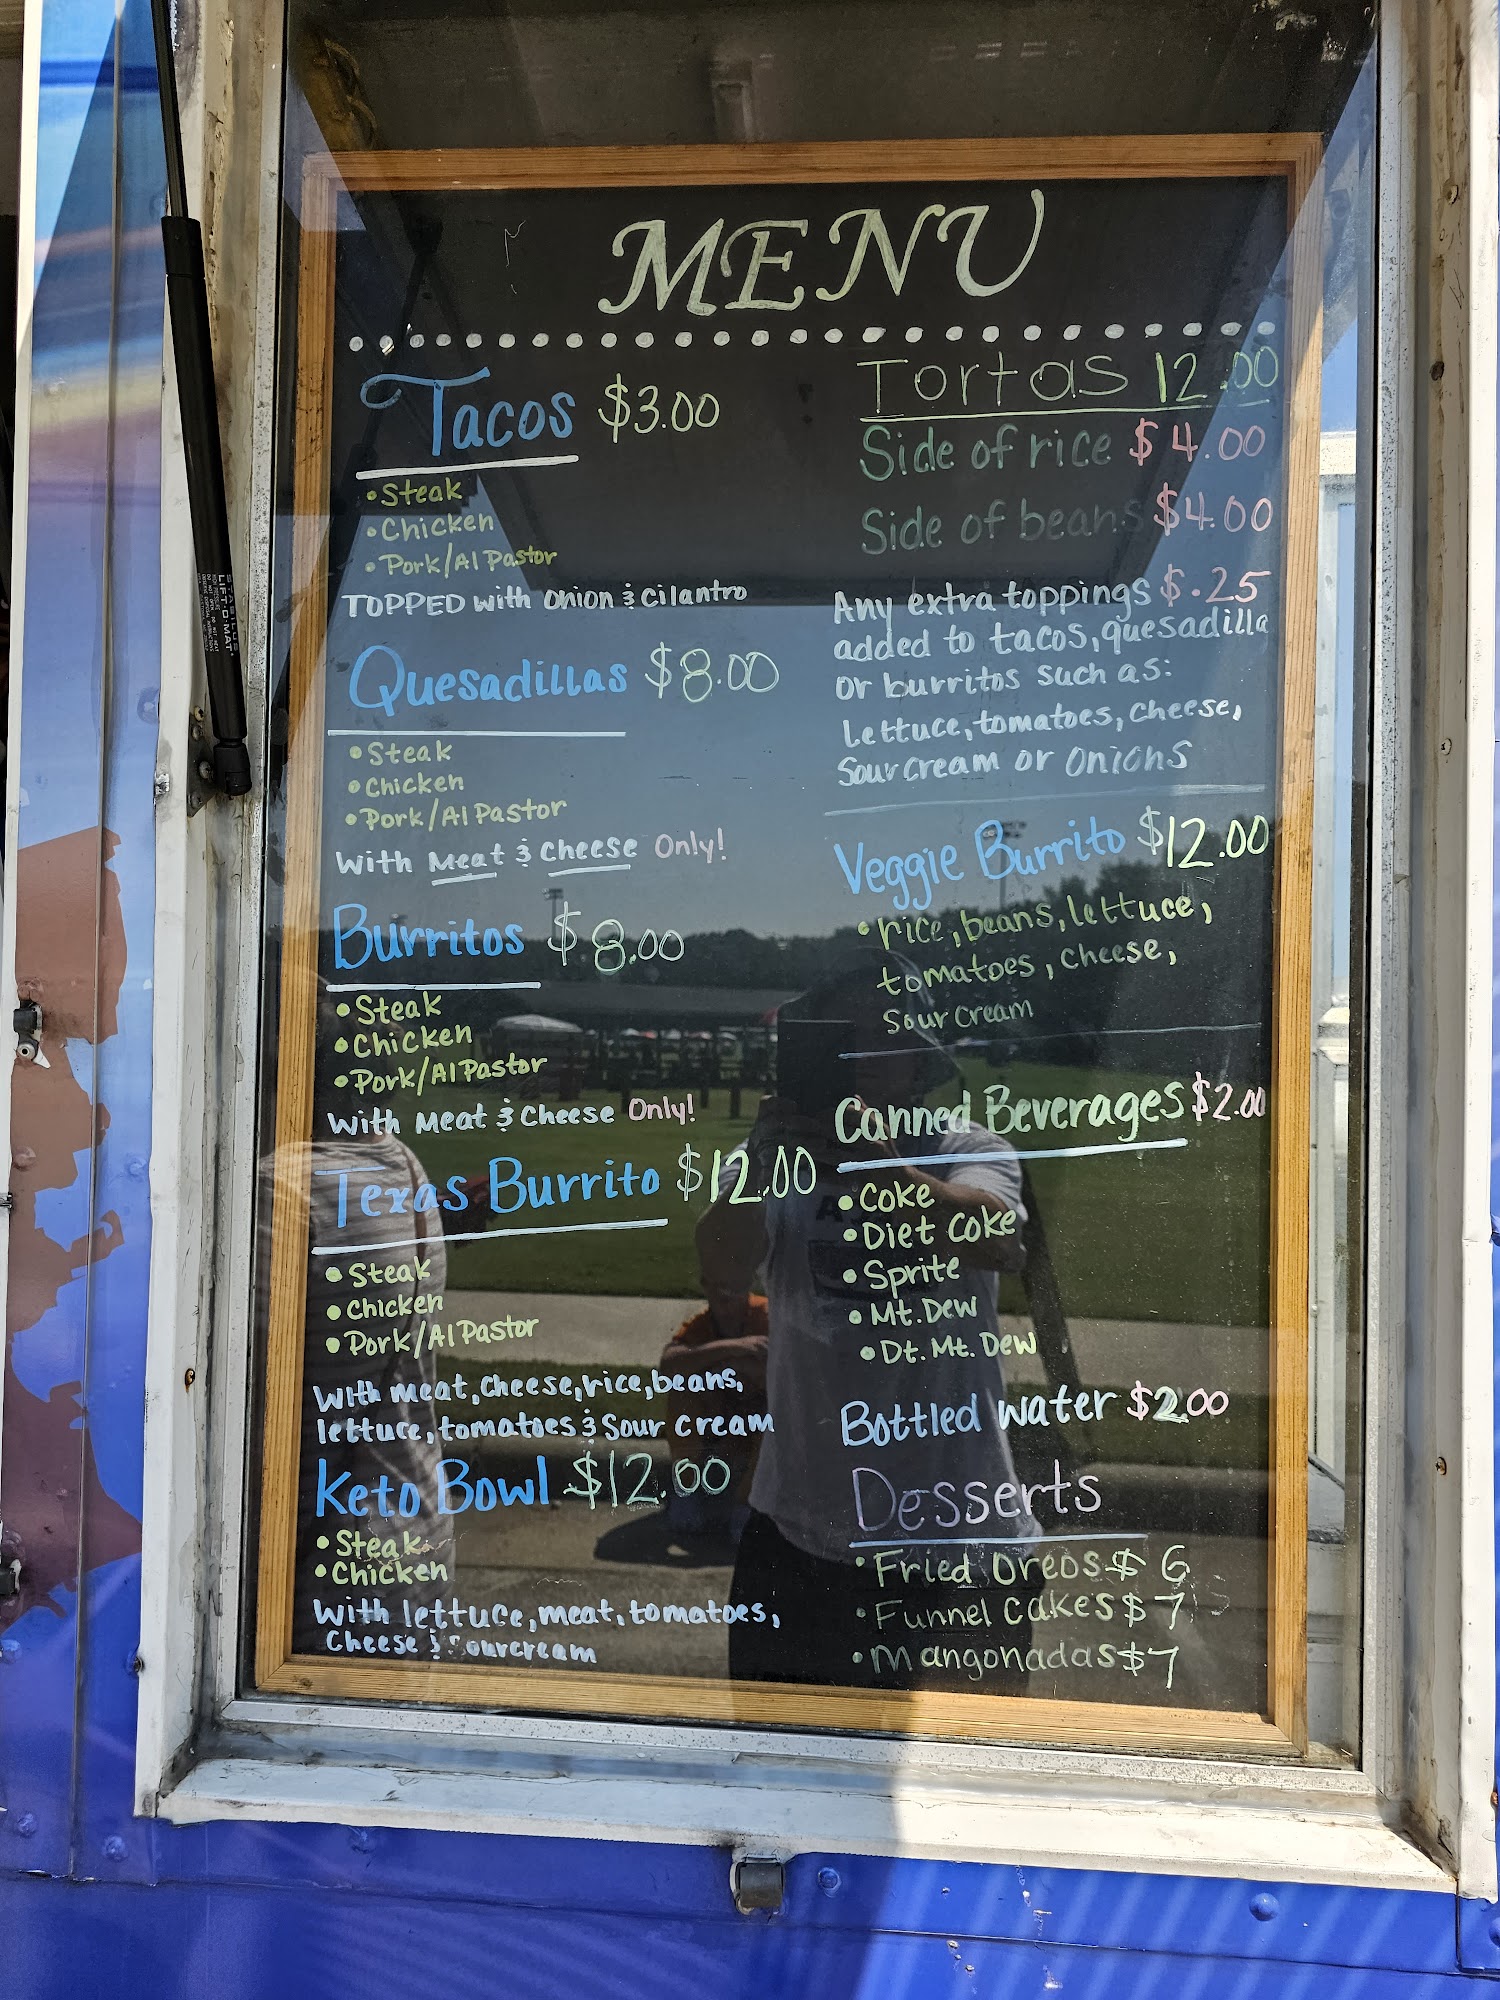 MENU
Tacos $3.00
• Steak
• Chicken
• Pork/Al Pastor
TOPPED with onion & cilantro
Quesadillas $8.00
• Steak
• Chicken
• Pork/Al Pastor
with Meat & Cheese Only!
Burritos $8.00
• Steak
• Chicken
• Pork/Al Pastor
with Meat & Cheese Only!
Texas Burrito $12.00
• Steak
• Chicken
• Pork/Al Pastor
with meat, cheese, rice, beans,
lettuce, tomatoes & Sour cream
Keto Bowl $12.00
• Steak
• Chicken
with lettuce, meat, tomatoes,
Cheese & sourcream
Tortas 12.00
Side of rice $4.00
Side of beans $4.00
Any extra toppings $.25
added to tacos, quesadilla
or burritos such as:
Lettuce, tomatoes, cheese,
Sour cream or onions
Veggie Burrito $12.00
• rice, beans, lettuce,
tomatoes, cheese,
Sour cream
Canned Beverages $2.00
• Coke
• Diet Coke
• Sprite
• Mt. Dew
• Dt. Mt. Dew
Bottled water $2.00
Desserts
• Fried Oreos $6
• Funnel cakes $7
• Mangonadas $7
STABILUS
LIFT-O-MAT